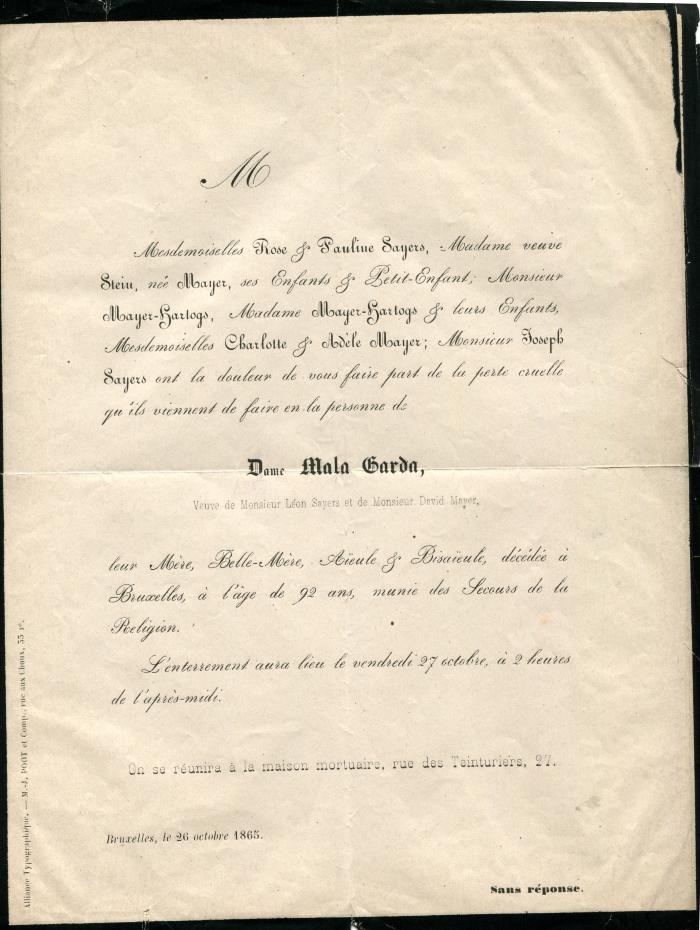 M
Mesdemoiselles Rose & Pauline Sayers, Madame veuve
Stein, née Mayer, ses Enfants & Petit-Enfant; Monsieur
Mayer-Hartogs, Madame Mayer-Hartogs & leurs Enfants,
Mesdemoiselles Charlotte & Adèle Mayer; Monsieur Joseph
Sayers ont la douleur de vous faire part de la perte cruelle
qu'ils viennent de faire en la personne de
Dame Mala Garda,
Veuve de Monsieur Léon Sayers et de Monsieur David Mayer,
leur Mère, Belle-Mère, Aïeule & Bisaïeule, décédée à
Bruxelles, à l'âge de 92 ans, munie des Secours de la
Religion.
L'enterrement aura lieu le vendredi 27 octobre, à 2 heures
de l'après-midi.
On se réunira à la maison mortuaire, rue des Teinturiers, 27.
Bruxelles, le 26 octobre 1865.
Sans réponse.
Alliance Typographique. — M.-J. POOT et Comp., rue aux Choux, 33